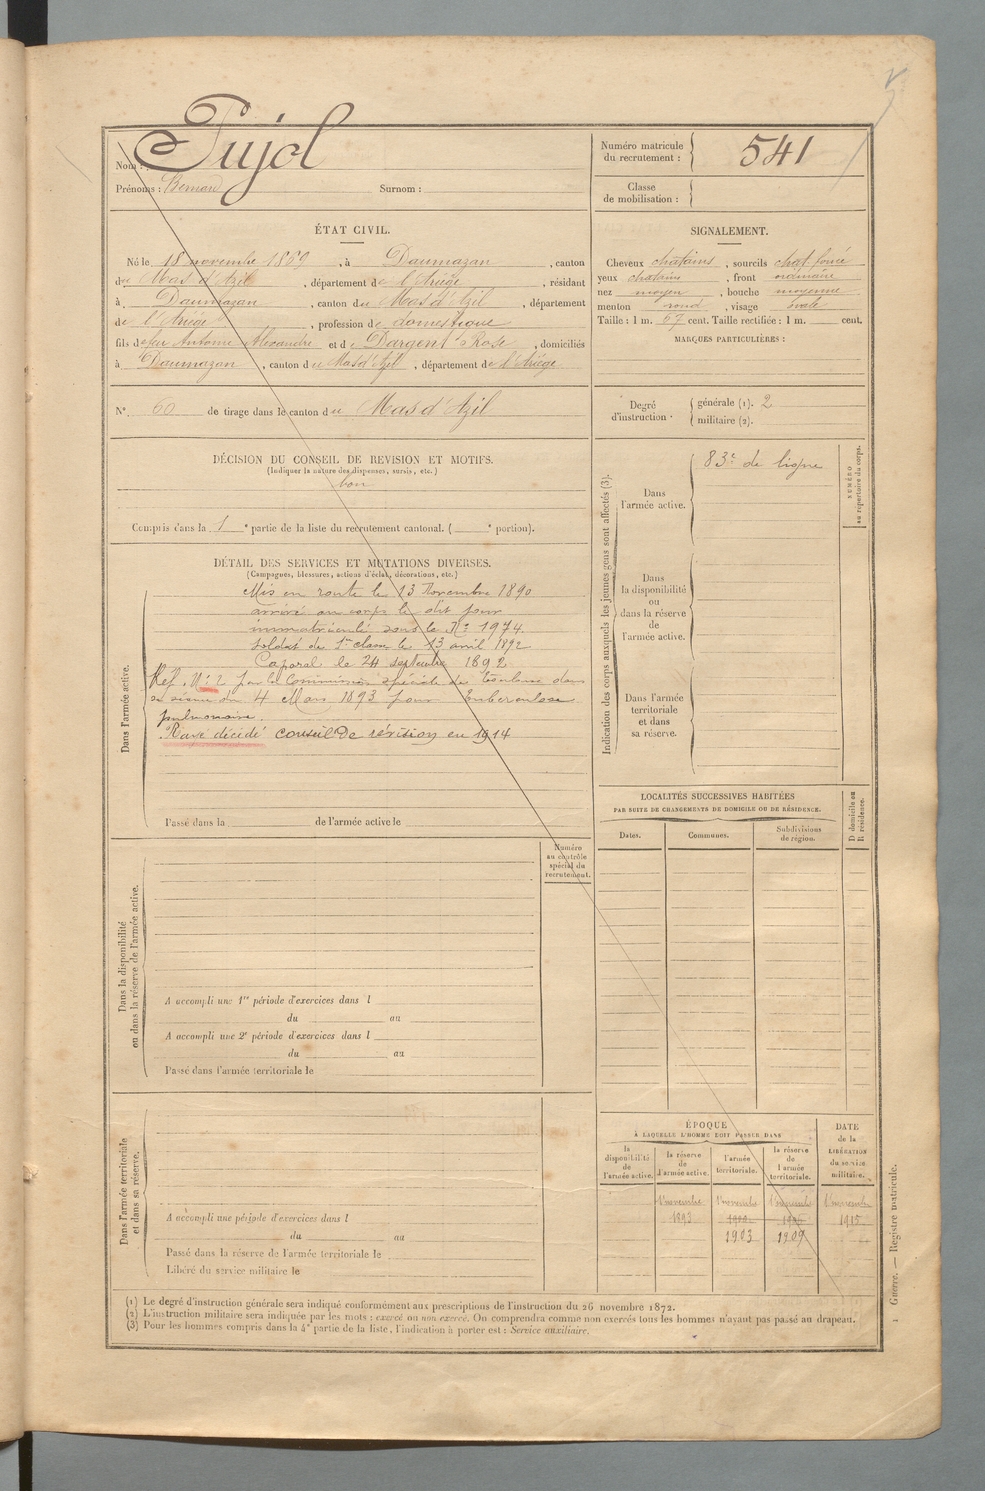 Nom : Pujol
Prénoms : Bernard Surnom :
Numéro matricule du recrutement : 541
Classe de mobilisation :
ÉTAT CIVIL.
Né le 18 novembre 1869, à Daumazan, canton
du Mas d'Azil, département de l'Ariège, résidant
à Daumazan, canton du Mas d'Azil, département
de l'Ariège, profession de domestique
fils de feu Antoine Alexandre et de Dargent Rose, domiciliés
à Daumazan, canton du Mas d'Azil, département de l'Ariège
N° 60 de tirage dans le canton du Mas d'Azil
SIGNALEMENT.
Cheveux chatains, sourcils chat. foncé
yeux chatains, front ordinaire
nez moyen, bouche moyenne
menton rond, visage ovale
Taille : 1 m. 67 cent. Taille rectifiée : 1 m. cent.
MARQUES PARTICULIÈRES :
Degré d'instruction. générale (1). 2
militaire (2).
DÉCISION DU CONSEIL DE REVISION ET MOTIFS.
(Indiquer la nature des dispenses, sursis, etc.)
bon
Compris dans la 1e partie de la liste du recrutement cantonal. ( e portion).
DÉTAIL DES SERVICES ET MUTATIONS DIVERSES.
(Campagnes, blessures, actions d'éclat, décorations, etc.)
Dans l'armée active.
Mis en route le 13 Novembre 1890
arrivé au corps le dit jour
immatriculé sous le N° 1974.
Soldat de 1re classe le 13 avril 1892
Caporal le 24 septembre 1892
Réf. N° 2 par la Commission spéciale de Toulouse dans
sa séance du 4 Mars 1893 pour tuberculose
pulmonaire.
Rayé décédé conseil De révision en 1914
Passé dans la de l'armée active le
Indication des corps auxquels les jeunes gens sont affectés (3).
Dans l'armée active.
83e de ligne
NUMÉRO au répertoire du corps.
Dans la disponibilité ou dans la réserve de l'armée active.
Dans l'armée territoriale et dans sa réserve.
LOCALITÉS SUCCESSIVES HABITÉES
PAR SUITE DE CHANGEMENTS DE DOMICILE OU DE RÉSIDENCE.
Dates. Communes. Subdivisions de région. D domicile ou R résidence.
Numéro au contrôle spécial du recrutement.
Dans la disponibilité ou dans la réserve de l'armée active.
A accompli une 1re période d'exercices dans l
du au
A accompli une 2e période d'exercices dans l
du au
Passé dans l'armée territoriale le
Dans l'armée territoriale et dans sa réserve.
A accompli une période d'exercices dans l
du au
Passé dans la réserve de l'armée territoriale le
Libéré du service militaire le
ÉPOQUE
À LAQUELLE L'HOMME DOIT PASSER DANS
la disponibilité de l'armée active. la réserve de l'armée active. l'armée territoriale. la réserve de l'armée territoriale.
DATE de la LIBÉRATION du service militaire.
1 novembre 1 novembre 1 novembre 1 novembre
1893 1915
1903 1909
(1) Le degré d'instruction générale sera indiqué conformément aux prescriptions de l'instruction du 26 novembre 1872.
(2) L'instruction militaire sera indiquée par les mots : exercé ou non exercé. On comprendra comme non exercés tous les hommes n'ayant pas passé au drapeau.
(3) Pour les hommes compris dans la 4e partie de la liste, l'indication à porter est : Service auxiliaire.
1 Guerre. — Registre matricule.